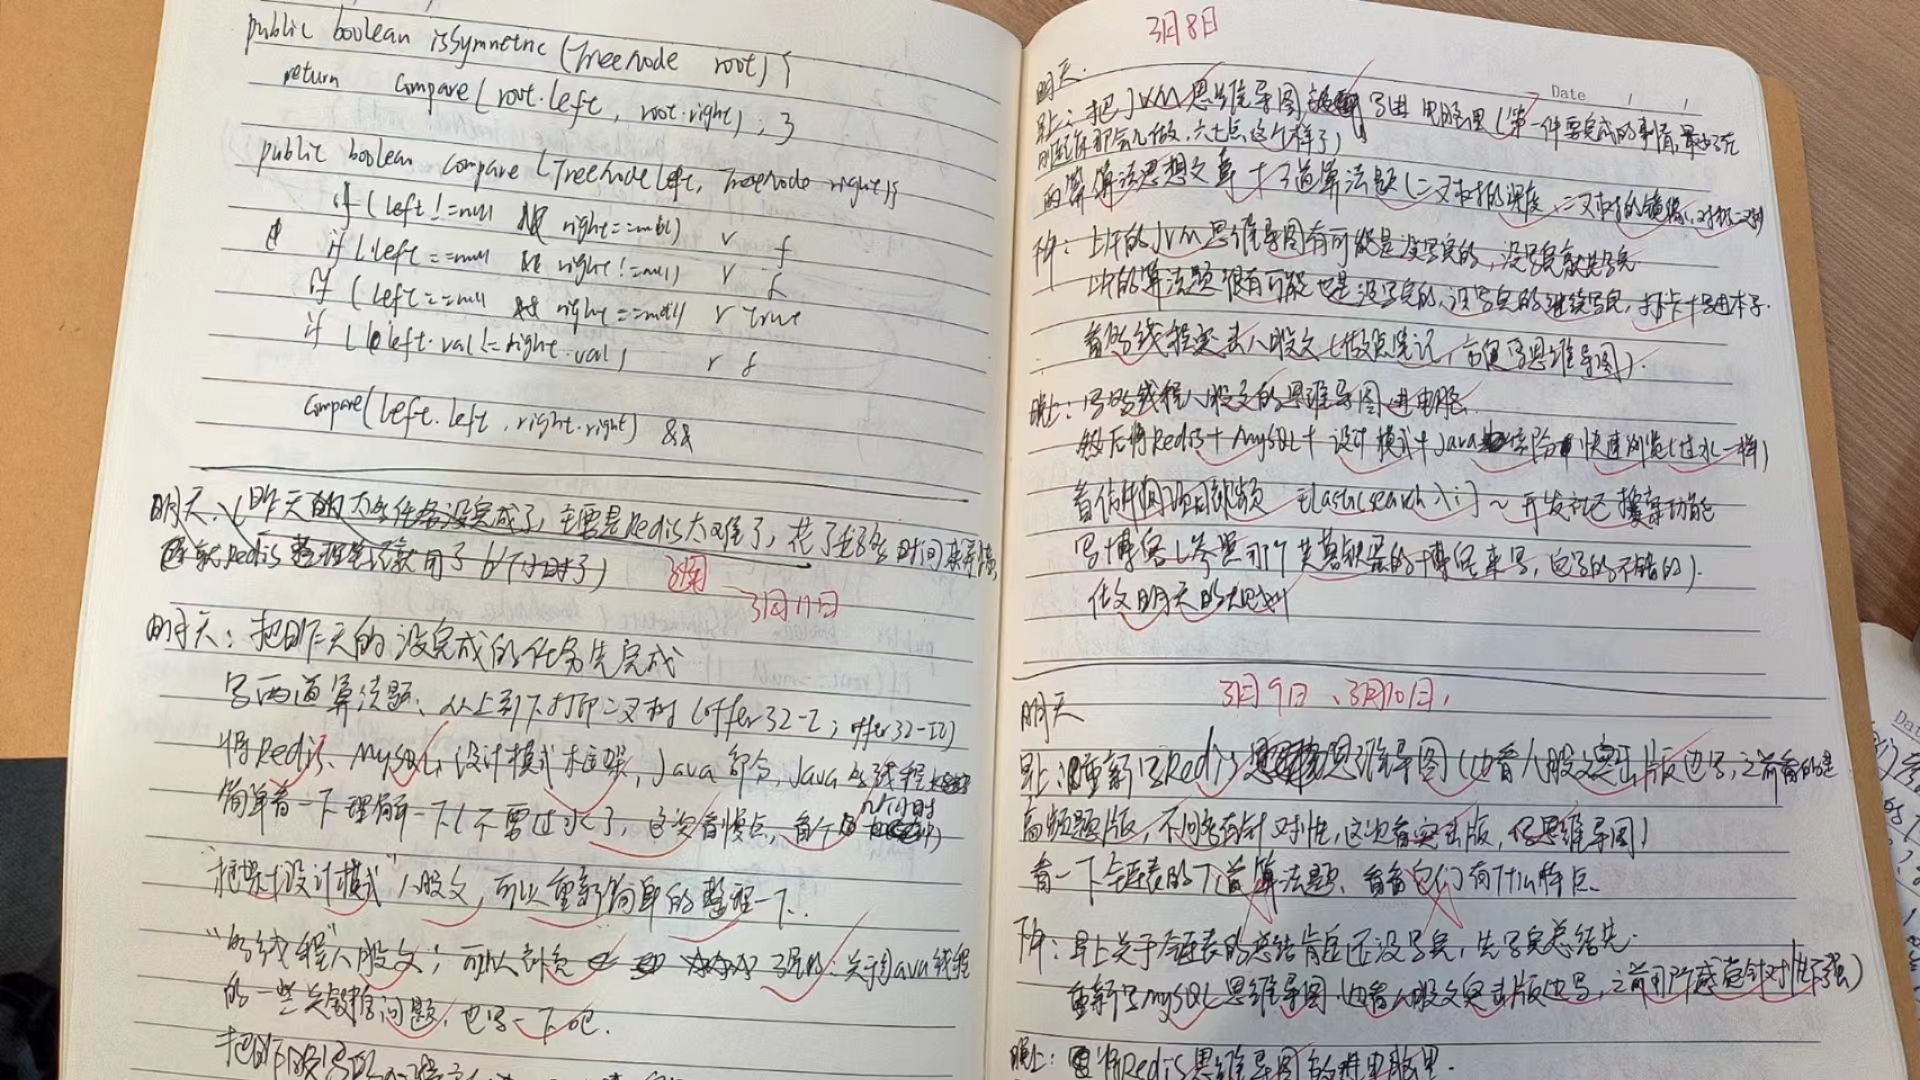 public boolean isSymmetric (TreeNode root) {
return compare( root.left , root.right) ; }
public boolean compare (TreeNode left, TreeNode right) {
if ( left != null && right == null) r f
if ( left == null && right != null) r f
if ( left == null && right == null) r true
if ( left.val != right.val) r f
compare( left.left , right.right) &&
明天、(昨天的任务没完成了, 主要是Redis太难了, 花了好多时间来弄懂,
就Redis整理笔记就用了6个小时了)
3月11日
明天: 把昨天的没完成的任务先完成
写两道算法题、从上到下打印二叉树 (offer32-I; offer32-II)
将Redis、MySQL、设计模式+框架, Java部分, Java多线程
简单看一下理解一下(不要过水了, 这次看慢点, 看个几个小时)
"框架+设计模式"八股文, 可以重新简单的整理一下.
"多线程"八股文; 可以补充 的: 关于Java线程
的一些关键字问题, 也写一下吧.
3月8日
Date / /
明天.
早上: 把JVM思维导图 写进电脑里(第一件要完成的事情, 最好
刚起床那会儿做, 六七点这个样子)
算法思想文章+3道算法题(二叉树的深度, 二叉树的镜像,
下午: 上午的JVM思维导图有可能是没写完的, 没写完就先写完
上午的算法题很有可能也是没写完的, 没写完的继续写完, 打卡+写进本子.
看多线程突击八股文(做点笔记, 方便写思维导图).
晚上: 写多线程八股文的思维导图进电脑.
然后将Redis+MySQL+设计模式+Java 部分快速浏览(过水一样)
看仿牛网项目视频 Elasticsearch入门 ~ 开发社区搜索功能
写博客(参照那个 的博客来写, 也写的不错的).
做好明天的规划
3月9日、3月10日,
明天
早上: 重新写Redis 思维导图(边看八股文突击版边写, 之前看的是
高频题版, 不同客有针对性, 这次看突击版, 做思维导图)
看一下 链表的7道算法题、看看它们有什么特点.
下午: 早上关于链表的总结肯定还没写完, 先写完总结先.
重新写MySQL思维导图(边看八股文突击版边写, 之前 感觉针对性不强)
晚上: 将Redis思维导图 进电脑里.